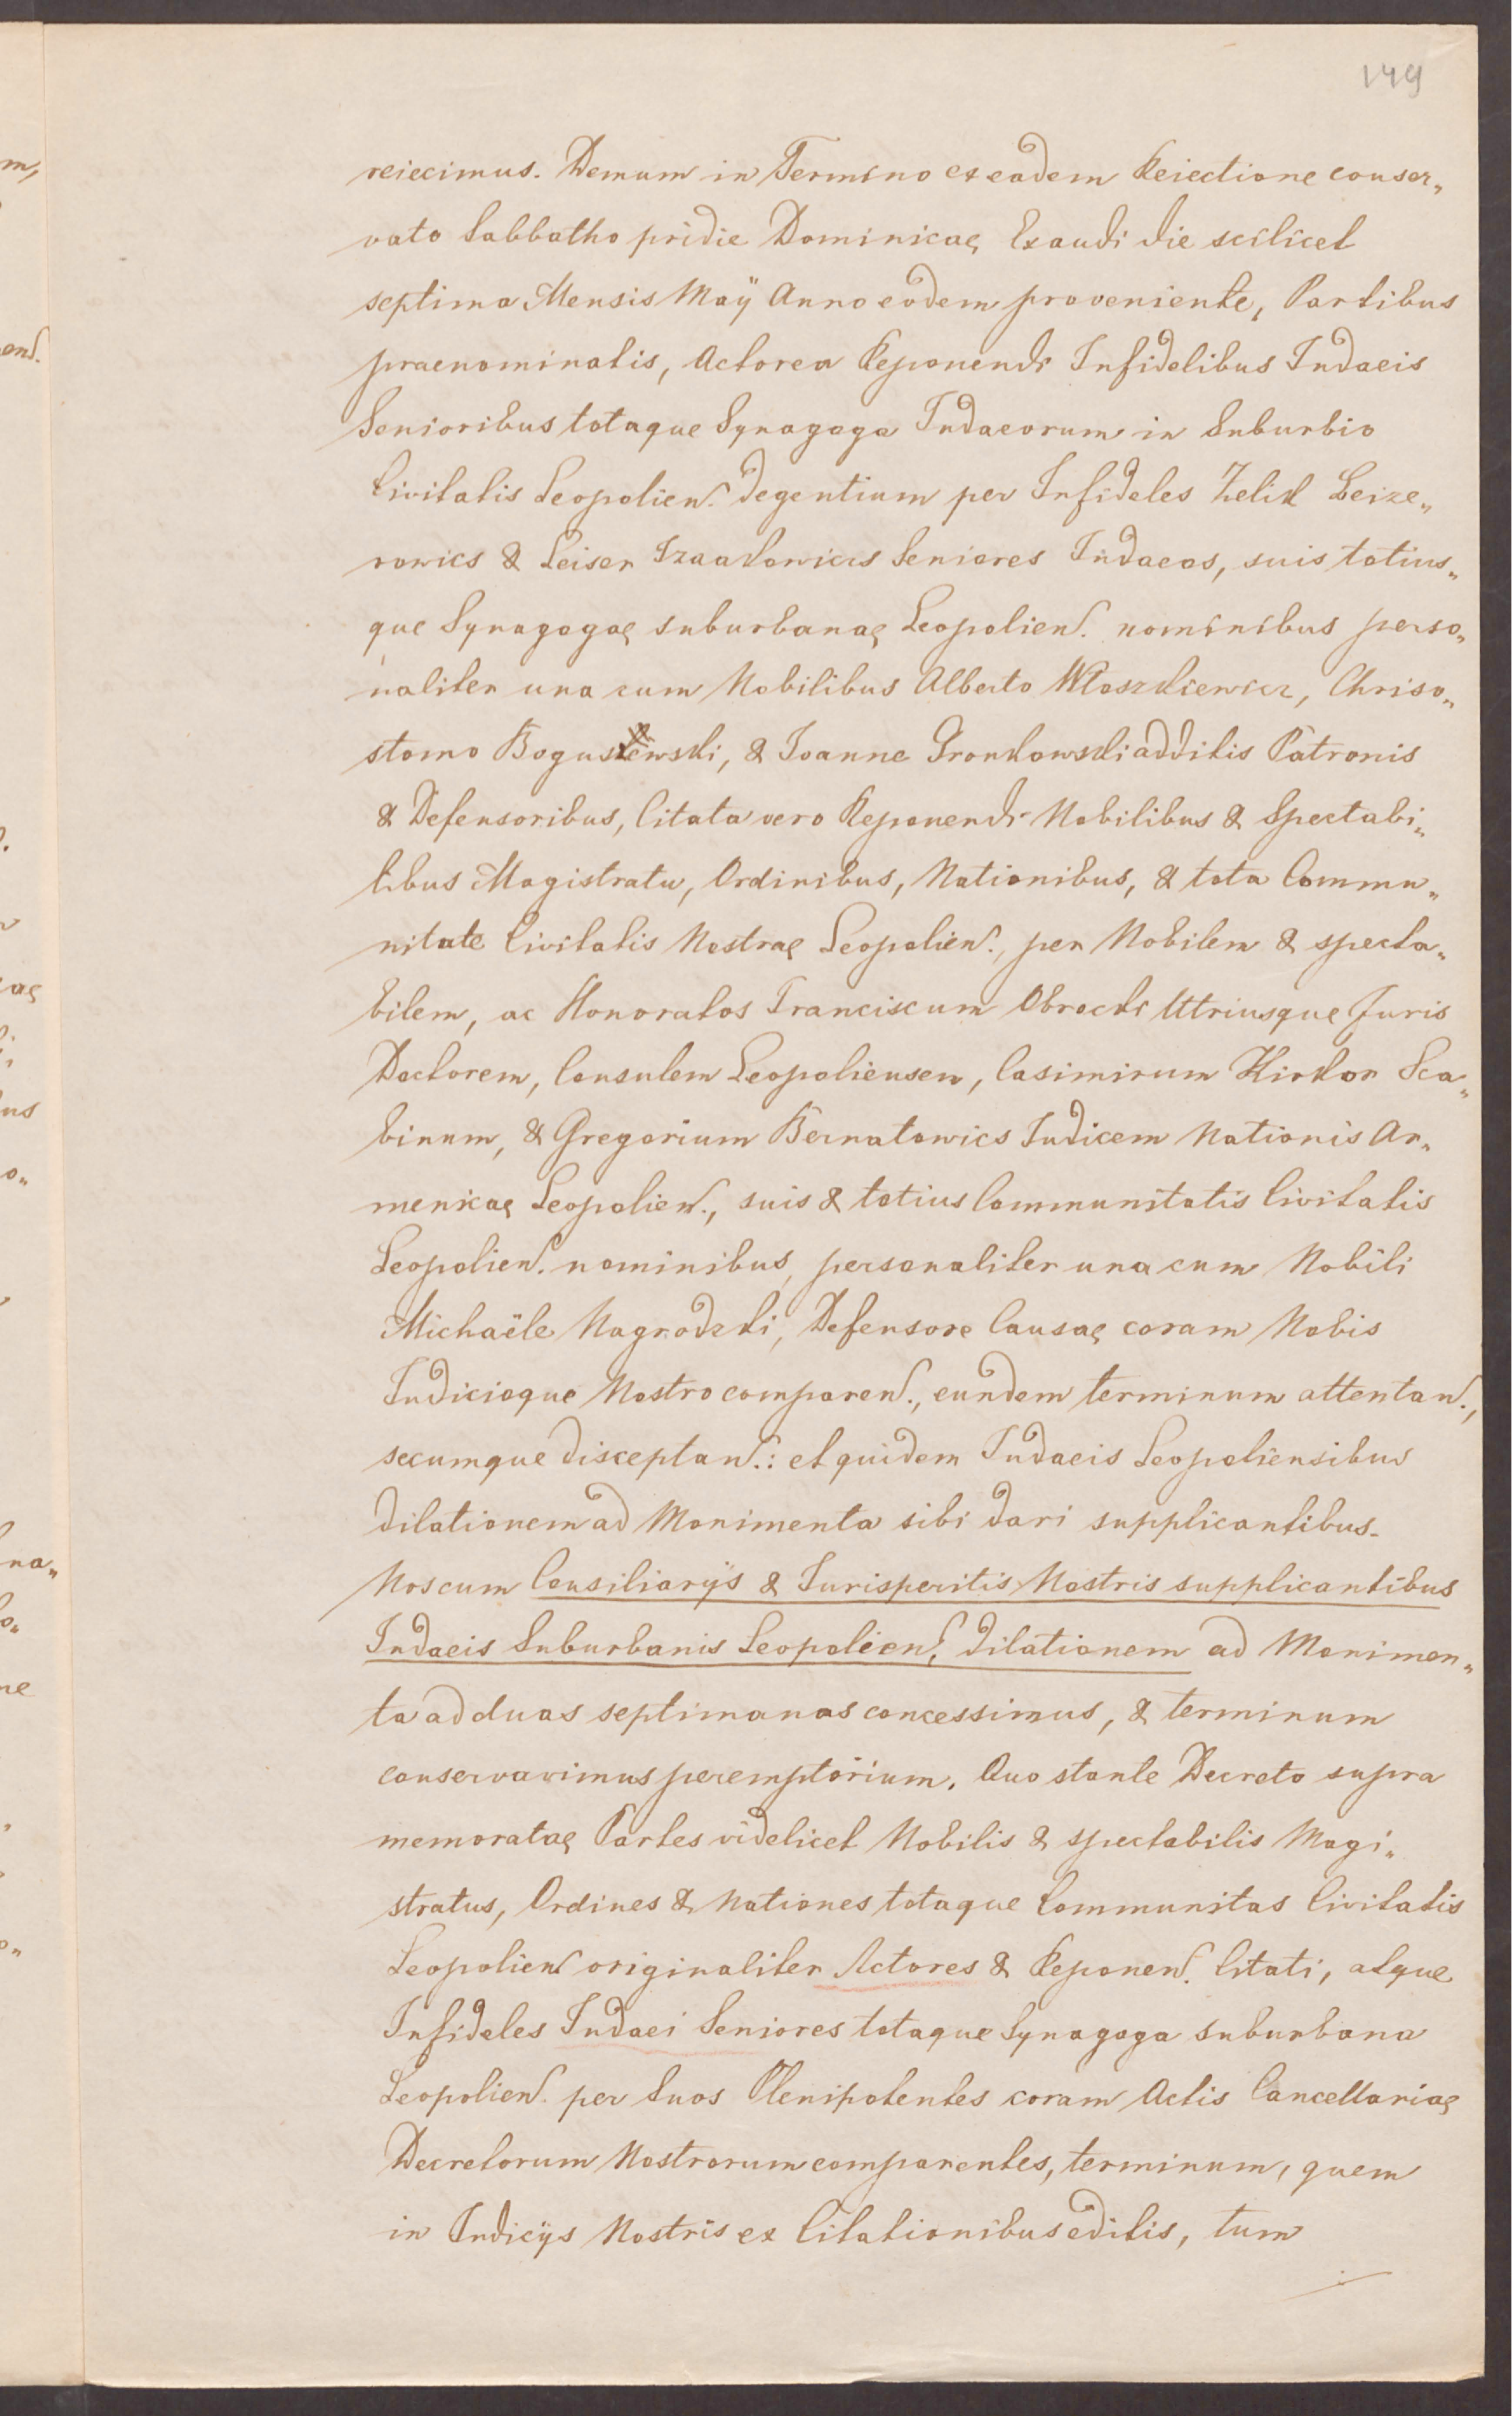 149
reiecimus. Demum in Termino ex eadem Reiectione conser„
vato Sabbatho pridie Dominicae Exaudi die scilicet
septima Mensis Maÿ Anno eodem proveniente, Partibus
praenominatis, Actorea Reponendi Infidelibus Iudaeis
Senioribus totaque Synagoga Iudaeorum in Suburbio
Civitatis Leopolien. degentium per Infideles Zelik Leize„
rowics & Leiser Izaakowics Seniores Iudaeos, suis totius„
que Synagogae suburbanae Leopolien. nominibus perso„
naliter una cum Nobilibus Alberto Włoszkiewicz, Chriso„
stomo Bogusewski, & Ioanne Gronkowski additis Patronis
& Defensoribus, Citata vero Reponendi Nobilibus & Spectabi„
libus Magistratu, Ordinibus, Nationibus, & tota Commu„
nitate Civitatis Nostrae Leopolien., per Nobilem & specta„
bilem, ac Honoratos Franciscum Obrocki Utriusque Juris
Doctorem, Consulem Leopoliensem, Casimirum Kirkor Sca„
binum, & Gregorium Bernatowics Iudicem Nationis Ar„
menicae Leopolien., suis & totius Communitatis Civitatis
Leopolien. nominibus, personaliter una cum Nobili
Michaële Nagrodzki, Defensore Causae coram Nobis
Iudicioque Nostro comparen., eundem terminum attentan.,
secumque disceptan.: et quidem Iudaeis Leopoliensibus
dilationem ad Monimenta sibi dari supplicantibus.
Nos cum Consiliarÿs & Iurisperitis Nostris supplicantibus
Iudaeis Suburbanis Leopolien., dilationem ad Monimen„
ta ad duas septimanas concessimus, & terminum
conservavimus peremptorium. Quo stante Decreto supra
memoratae Partes videlicet Nobilis & spectabilis Magi„
stratus, Ordines & Nationes totaque Communitas Civitatis
Leopolien originaliter Actores & Reponen. Citati, atque
Infideles Iudaei Seniores totaque Synagoga suburbana
Leopolien. per Suos Plenipotentes coram Actis Cancellariae
Decretorum Nostrorum comparentes, terminum, quem
in Iudicÿs Nostris ex Citationibus editis, tum